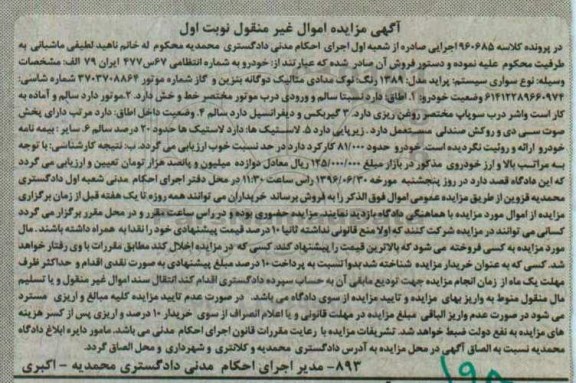 آگهی مزایده اموال غیر منقول نوبت اول
در پرونده کلاسه ۹۶۰۶۸۵ اجرایی صادره از شعبه اول اجرای احکام مدنی دادگستری محمدیه محکوم له خانم ناهید لطیفی ماشبانی به
طرفیت محکوم علیه نموده و دستور فروش آن صادر شده که عبارتند از: خودرو به شماره انتظامی ۶۷س۴۷۷ ایران ۷۹ الف: مشخصات
وسیله: نوع سواری سیستم: پراید مدل: ۱۳۸۹ رنگ: نوک مدادی متالیک دوگانه بنزین و گاز شماره موتور ۳۷۰۳۷۰۸۸۶۴ شماره شاسی:
۶۱۴۱۲۲۸۹۶۶۰۹۷۴ وضعیت خودرو: ۱. اطاق: دارد نسبتا سالم و ورودی درب موتور مختصر خط و خش دارد. ۲.موتور دارد سالم و آماده به
کار است واشر درب سوپاپ مختصر روغن ریزی دارد. ۳. گیربکس و دیفرانسیل دارد سالم ۴. وضعیت داخل اطاق: دارد مرتب دارای پخش
صوت سی دی و روکش صندلی مستعمل دارد . زیرپایی دارد ۵. لاستیک ها: دارد لاستیک ها حدود ۲۰ درصد سالم ۶. سایر : بیمه نامه
خودرو ارائه و رویت نگردیده است. خودرو حدود ۸۱/۰۰۰ کارکرد دارد در حد نسبت خوب ارزیابی می گردد. ب: نتیجه کارشناسی: با توجه
به مراتب بالا و ارز خودروی مذکور در بازار مبلغ ۱۲۵/۰۰۰/۰۰۰ ریال معادل دوازده میلیون و پانصد هزار تومان تعیین و ارزیابی می گردد
که این دادگاه قصد دارد در روز پنجشنبه مورخه ۱۳۹۶/۰۶/۳۰ راس ساعت ۱۱:۳۰ در محل دفتر اجرای احکام مدنی شعبه اول دادگستری
محمدیه قزوین از طریق مزایده عمومی اموال فوق الذکر را به فروش برساند خریداران می توانند همه روزه تا یک هفته قبل از زمان برگزاری
مزایده از اموال مورد مزایده با هماهنگی دادگاه بازدید نمایند. مزایده حضوری بوده و در راس ساعت مقرر و در محل مقرر برگزار می گردد
کسانی می توانند در مزایده شرکت کنند که اولا منع قانونی نداشته ثانیا ۱۰ درصد قیمت پیشنهادی خود را نقدا به همراه داشته باشند. مال
مورد مزایده به کسی فروخته می شود که بالاترین قیمت را پیشنهاد کند. کسی که در مزایده اخلال کند مطابق مقررات با وی رفتار خواهد
شد. کسی که به عنوان خریدار مزایده شناخته شد بدوا نسبت به پرداخت ۱۰ درصد مبلغ پیشنهادی به صورت نقدی اقدام و حداکثر ظرف
مهلت یک ماه از زمان انجام مزایده جهت تودیع مابقی آن به حساب سپرده دادگستری اقدام کند. انتقال سند اموال غیر منقول و یا تسلیم
مال منقول منوط به واریز بهای مزایده و تایید مزایده از سوی دادگاه می باشد. در صورت عدم تایید مزایده کلیه مبالغ و اریزی مسترد
می شود در صورت عدم واریز الباقی مبلغ مزایده در مهلت قانونی و یا اعلام انصراف از سوی خریدار ۱۰ درصد و اریزی پس از کسر هزینه
های مزایده به نفع دولت ضبط خواهد شد. تشریفات مزایده با رعایت مقررات قانون اجرای احکام مدنی می باشد. مامور دایره ابلاغ دادگاه
محمدیه نسبت به الصاق آگهی در محل مزایده به آدرس دادگستری محمدیه و کلانتری و شهرداری و محل الصاق گردد.
۸۹۳- مدیر اجرای احکام مدنی دادگستری محمدیه - اکبری